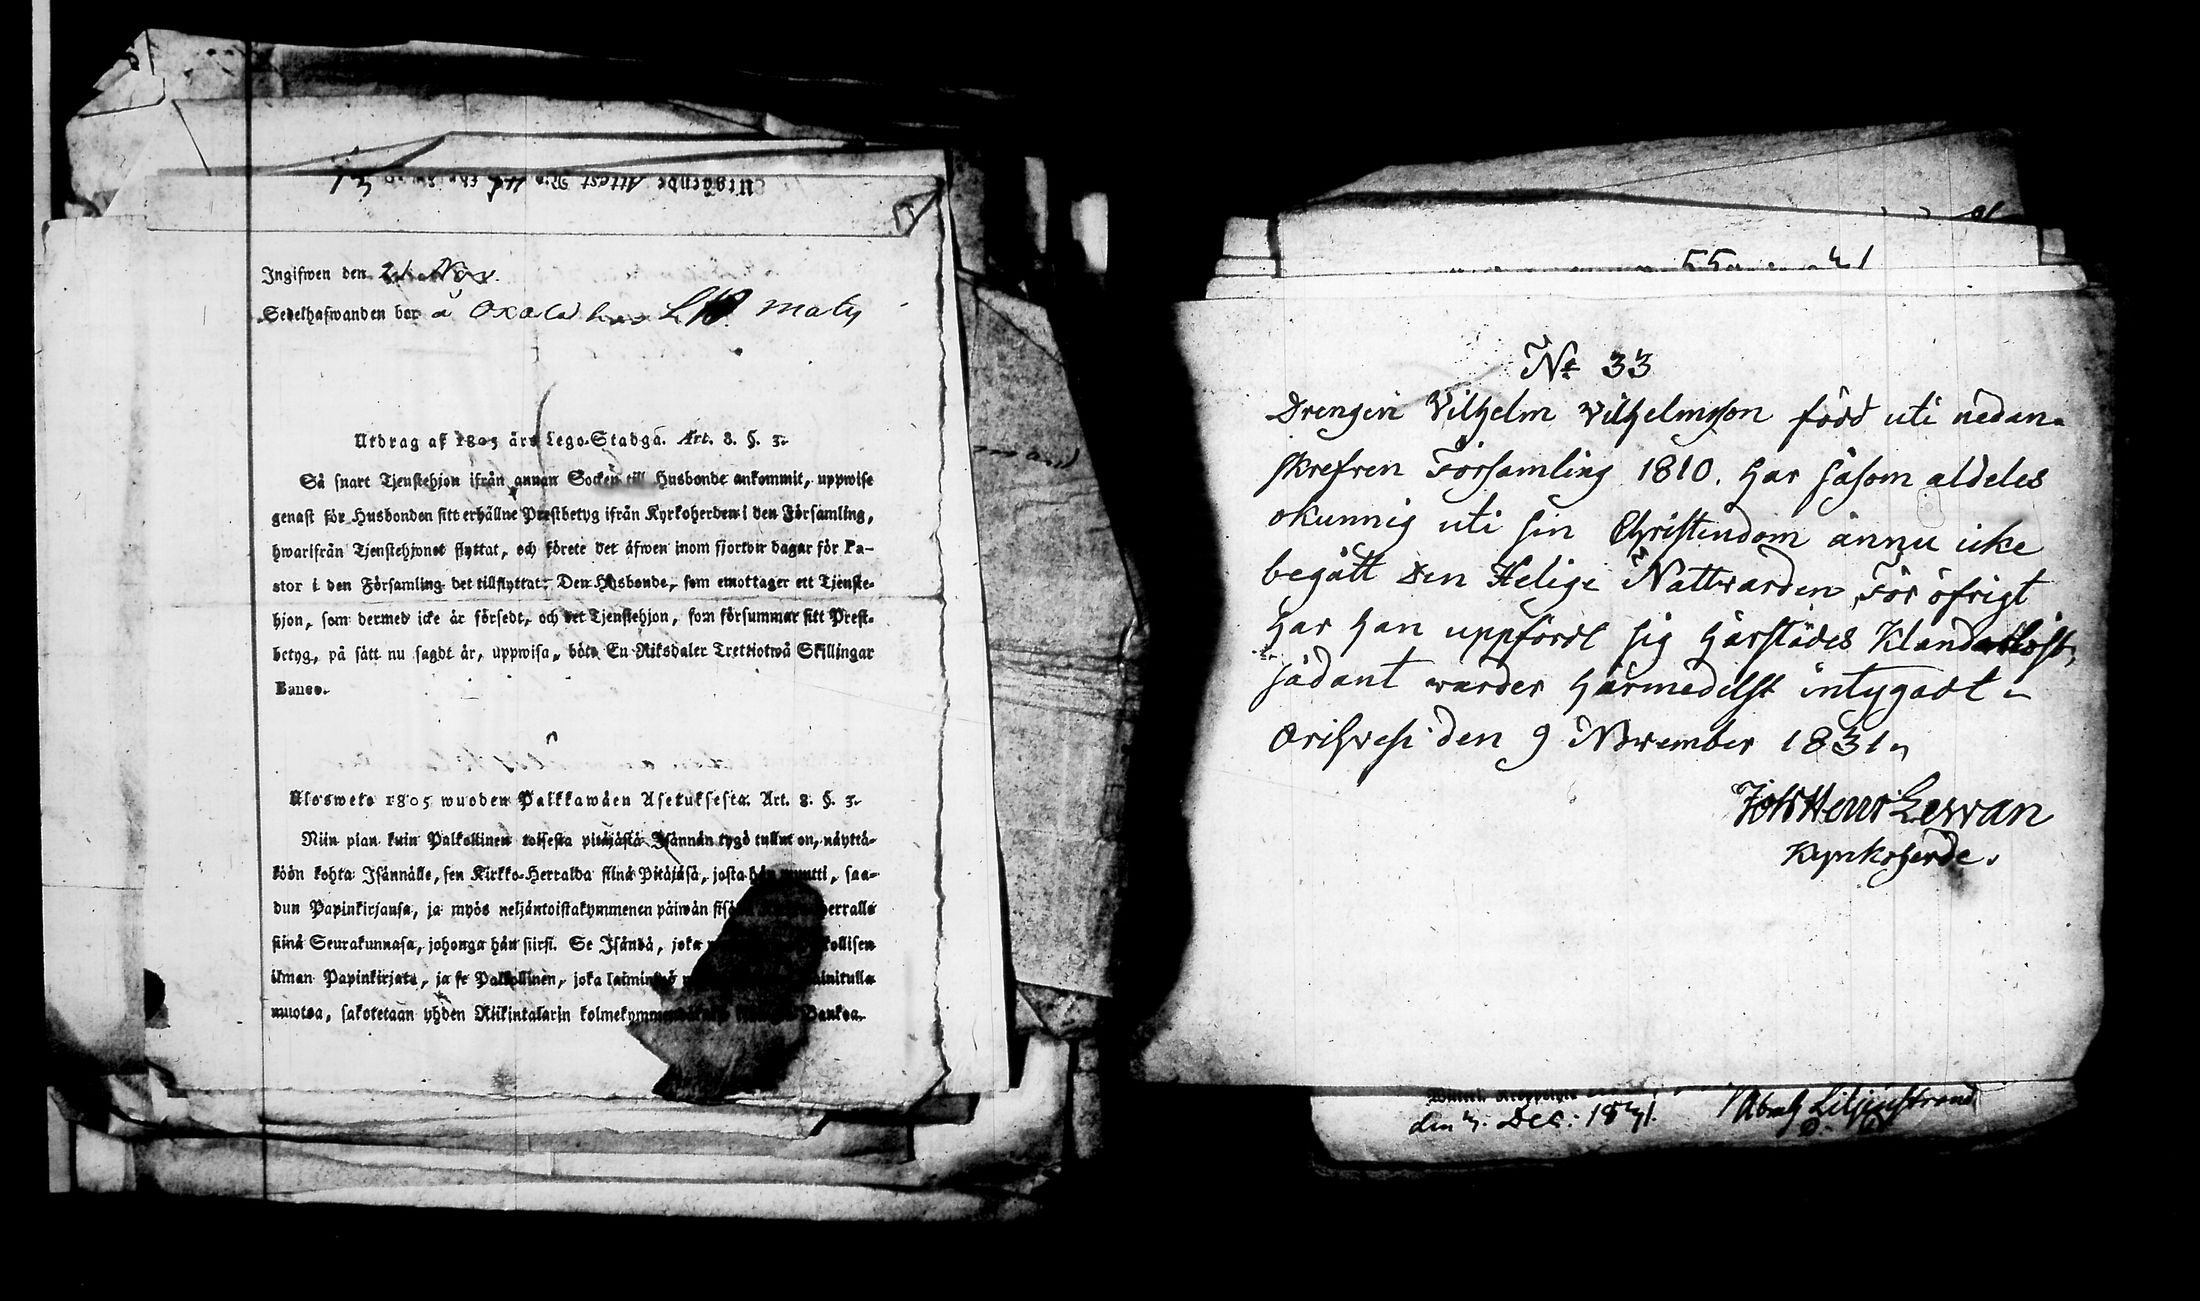 Utgående Attest No
Ingifwen den 21 Nov.
Sedelhafwanden bor å Oxala hos Maty
Utdrag af 1805 års Lego-Stadga. Art. 8. §. 3.
Så snart Tjenstehjon ifrån annan Socken till Husbonde ankommit, uppwise
genast för Husbonden sitt erhållne Prestbetyg ifrån Kyrkoherden i den Församling,
hwarifrån Tjenstehjonet flyttat, och förete det äfwen inom fjorton dagar för Pa-
stor i den Församling det tillflyttat. Den Husbonde, som emottager ett Tjenste-
hjon, som dermed icke är försedt, och det Tjenstehjon, som försummar sitt Prest-
betyg, på sätt nu sagdt är, uppwisa, böte En Riksdaler Trettiotwå Skillingar
Banco.
Ulosweto 1805 wuoden Palkkawäen Asetuksesta. Art. 8. §. 3.
Niin pian kuin Palkollinen toisesta pitäjästä Isännän tygö tullut on, näyttä-
köön kohta Isännälle, sen Kirkko-Herralda siinä Pitäjäsä, josta hän muutti, saa-
dun Papinkirjansa, ja myös neljäntoistakymmenen päiwän sisä herralle
siinä Seurakunnasa, johonga hän siirsi. Se Isändä, joka kollisen
ilman Papinkirjata, ja se Palkollinen, joka laiminlyö mainitulla
muotoa, sakotetaan yhden Riikintalarin kolmekymmendäkaksi Bankoa.
55
No 33
Drengen Vilhelm Vilhelmsson född uti nedan-
skrefven Församling 1810, har såsom aldeles
okunnig uti sin Christendom ännu icke
begått den Helige Nattvarden, För öfrigt
har han uppfördt sig härstädes Klanderlöst,
sådant warder härmedelst intygadt
Orihvesi den 9 November 1831
Joh Henr Levan
Kyrkoherde.
den 4. Dec: 1831. Abrah Liljenstrand